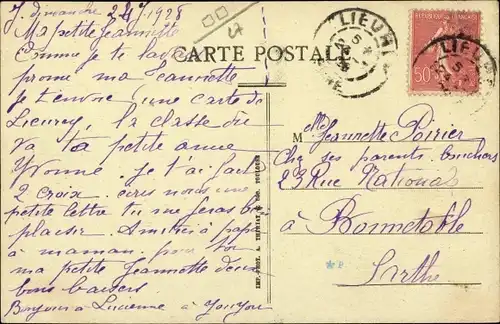 dimanche 1928
Ma petite Jeannette
Comme je te l'avais
promi ma Jeannette
je t'envoie une carte de
Lieurey, la classe où
va ta petite amie
Yvonne. je t'ai fait
2 croix écris nous une
petite lettre tu me feras bien
plaisir. Amitiés à papa
à maman, pour toi
ma petite Jeannette deux
bons baisers
Bonjour à Lucienne à YouYou
CARTE POSTALE
LIEUREY
EURE
LIEUREY
REPUBLIQUE FRANÇAISE
50
Melle Jeannette Poirier
Chez ses parents. bouchers
23 Rue Nationale
à Bonnetable
Sarthe